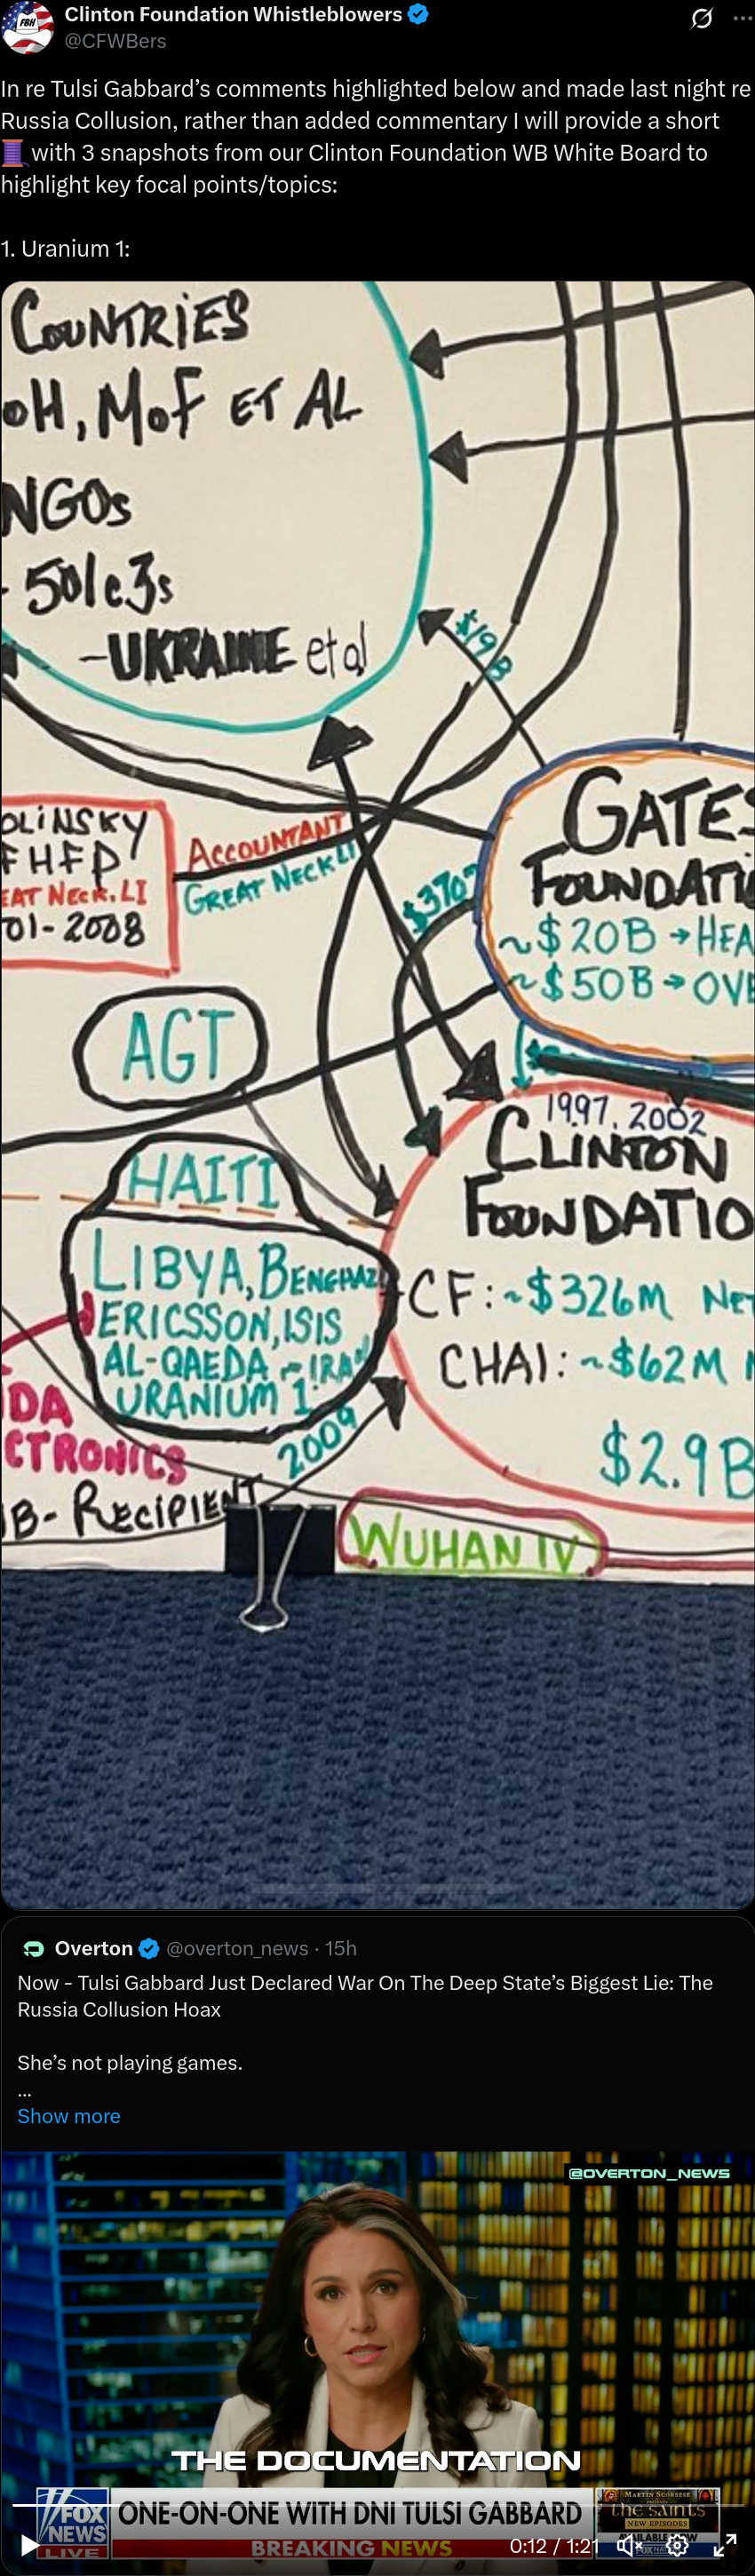 FBH
Clinton Foundation Whistleblowers
@CFWBers
In re Tulsi Gabbard’s comments highlighted below and made last night re
Russia Collusion, rather than added commentary I will provide a short
🧵 with 3 snapshots from our Clinton Foundation WB White Board to
highlight key focal points/topics:
1. Uranium 1:
COUNTRIES
OH, MOF ET AL
NGOs
- 501c3s
- UKRAINE et al
$19B
OLINSKY
FHFP
EAT NECK, LI
01-2008
ACCOUNTANT
GREAT NECK LI
$370?
GATES
FOUNDATI
~$20B → HEA
~$50B → OVE
AGT
1997, 2002
CLINTON
FOUNDATIO
CF: ~$326M NET
CHAI: ~$62M
$2.9B
HAITI
LIBYA, BENGHAZ
ERICSSON, ISIS
AL-QAEDA - IRAN
URANIUM 1
2009
DA
CTRONICS
B- RECIPIENT
WUHAN IV
Overton @overton_news · 15h
Now - Tulsi Gabbard Just Declared War On The Deep State’s Biggest Lie: The
Russia Collusion Hoax
She’s not playing games.
...
Show more
@OVERTON_NEWS
THE DOCUMENTATION
FOX
NEWS
LIVE
ONE-ON-ONE WITH DNI TULSI GABBARD
BREAKING NEWS
MARTIN SCORSESE
the saints
NEW EPISODES
0:12 / 1:21